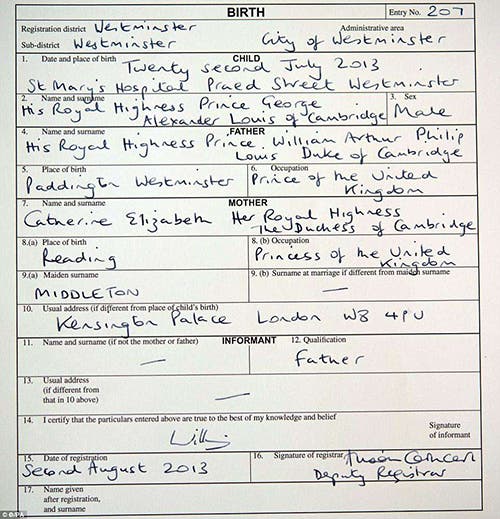 BIRTH
Entry No. 207
Registration district Westminster
Administrative area
Sub-district Westminster
City of Westminster
CHILD
1. Date and place of birth
Twenty second July 2013
St Mary's Hospital Praed Street Westminster
2. Name and surname
3. Sex
His Royal Highness Prince George
Alexander Louis of Cambridge
Male
FATHER
4. Name and surname
His Royal Highness Prince William Arthur Philip
Louis Duke of Cambridge
5. Place of birth
6. Occupation
Paddington Westminster
Prince of the United
Kingdom
MOTHER
7. Name and surname
Catherine Elizabeth Her Royal Highness
The Duchess of Cambridge
8.(a) Place of birth
8. (b) Occupation
Reading
Princess of the United
Kingdom
9.(a) Maiden surname
9. (b) Surname at marriage if different from maiden surname
MIDDLETON
—
10. Usual address (if different from place of child's birth)
Kensington Palace London W8 4PU
INFORMANT
11. Name and surname (if not the mother or father)
12. Qualification
—
Father
13. Usual address
(if different from
that in 10 above)
—
14. I certify that the particulars entered above are true to the best of my knowledge and belief
Signature
of informant
15. Date of registration
16. Signature of registrar
Second August 2013
Deputy Registrar
17. Name given
after registration,
and surname